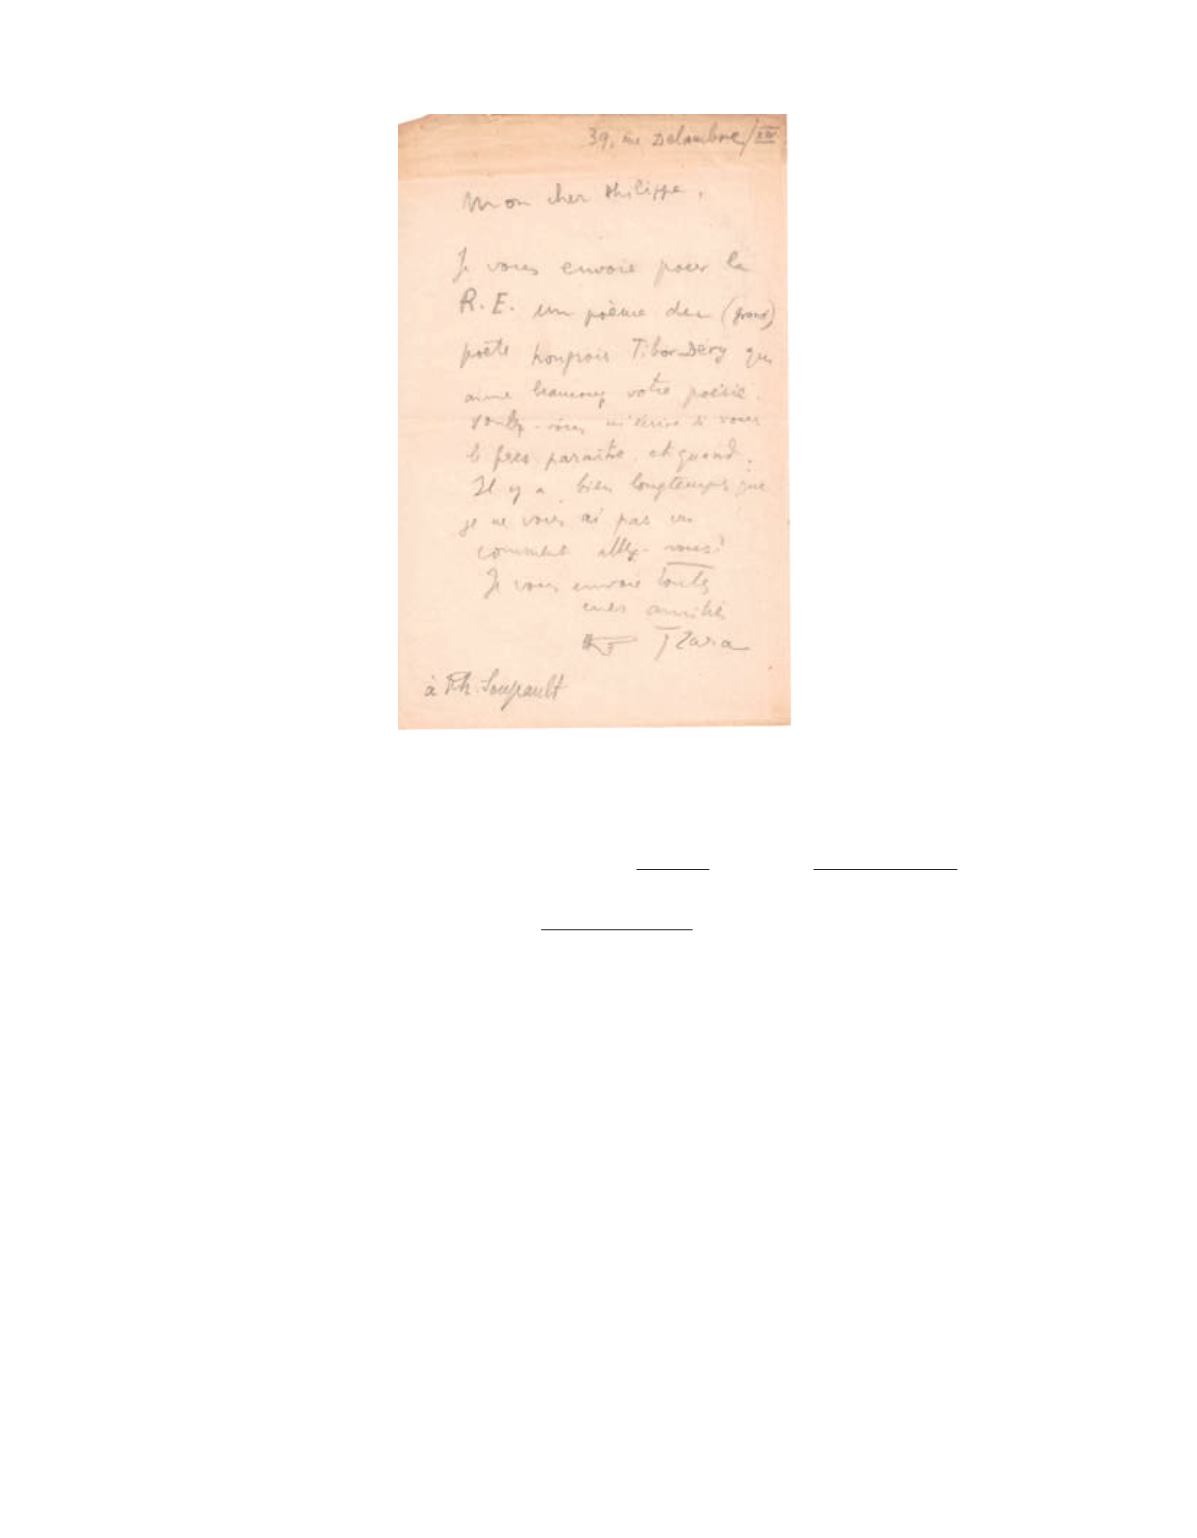 39, rue Delambre/XIV
Mon cher Philippe,
Je vous envoie pour la
R.E. un poème du (grand)
poète hongrois Tibor Déry qui
aime beaucoup votre poésie.
Voulez-vous m'écrire si vous
le ferez paraître et quand.
Il y a bien longtemps que
je ne vous ai pas vu
comment allez-vous?
Je vous envoie toutes
mes amitiés
Tzara
à Ph. Soupault